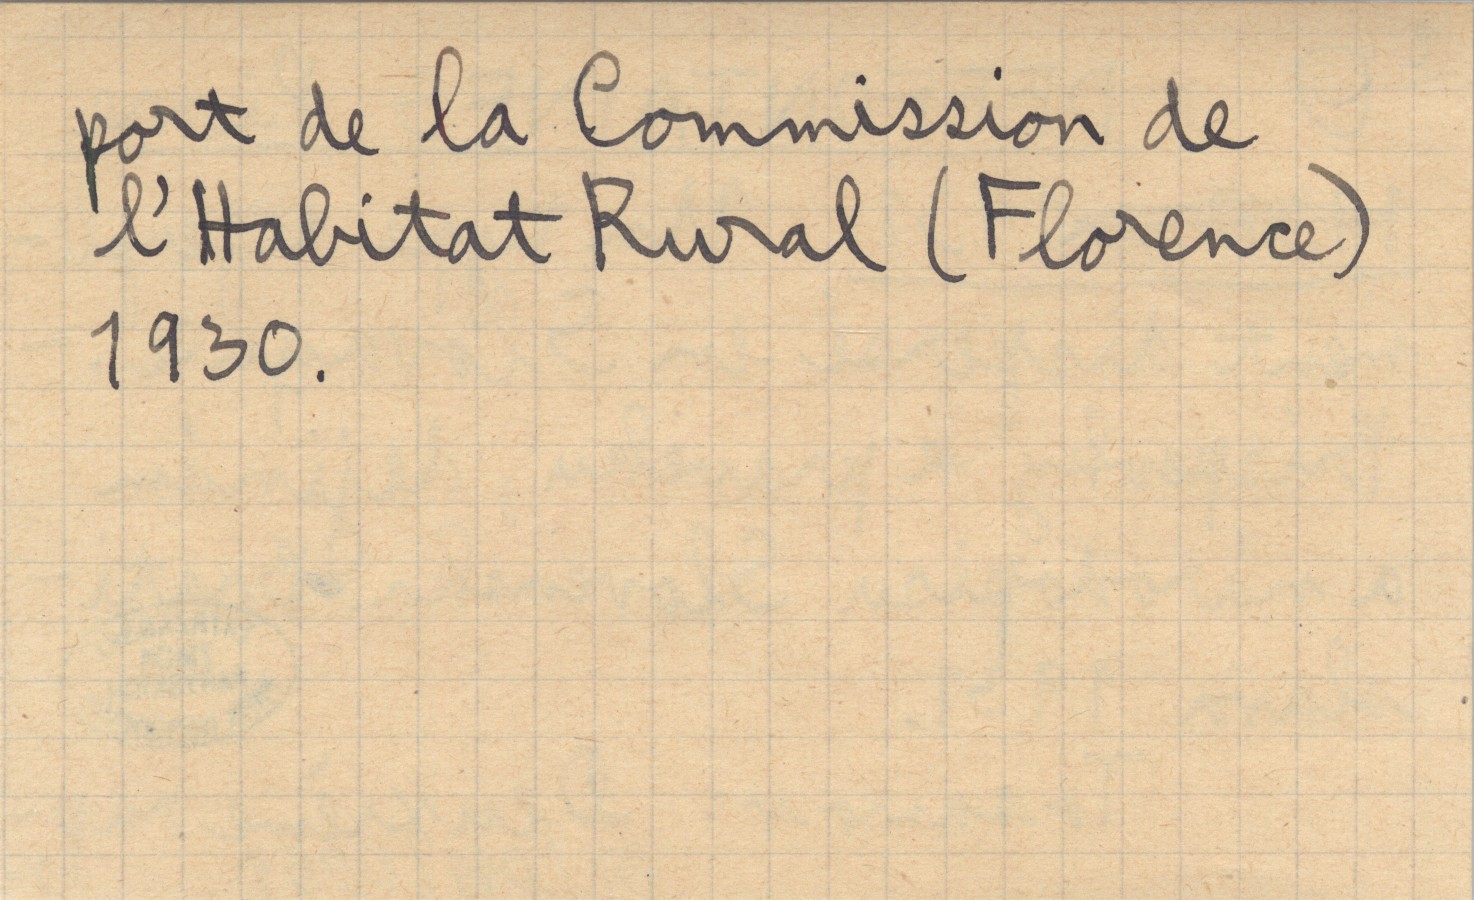 port de la Commission de
l'Habitat Rural (Florence)
1930.